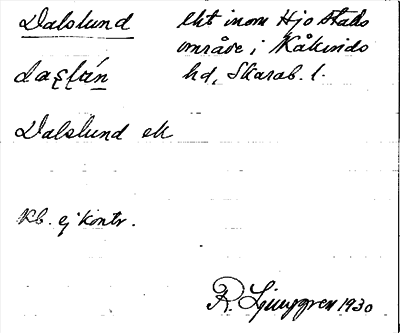 Dalslund
ekt inom Hjo stads
område i Kåkinds
hd, Skarab. l.
Dalslund ek
Kb. ej kontr.
R. Ljunggren 1930